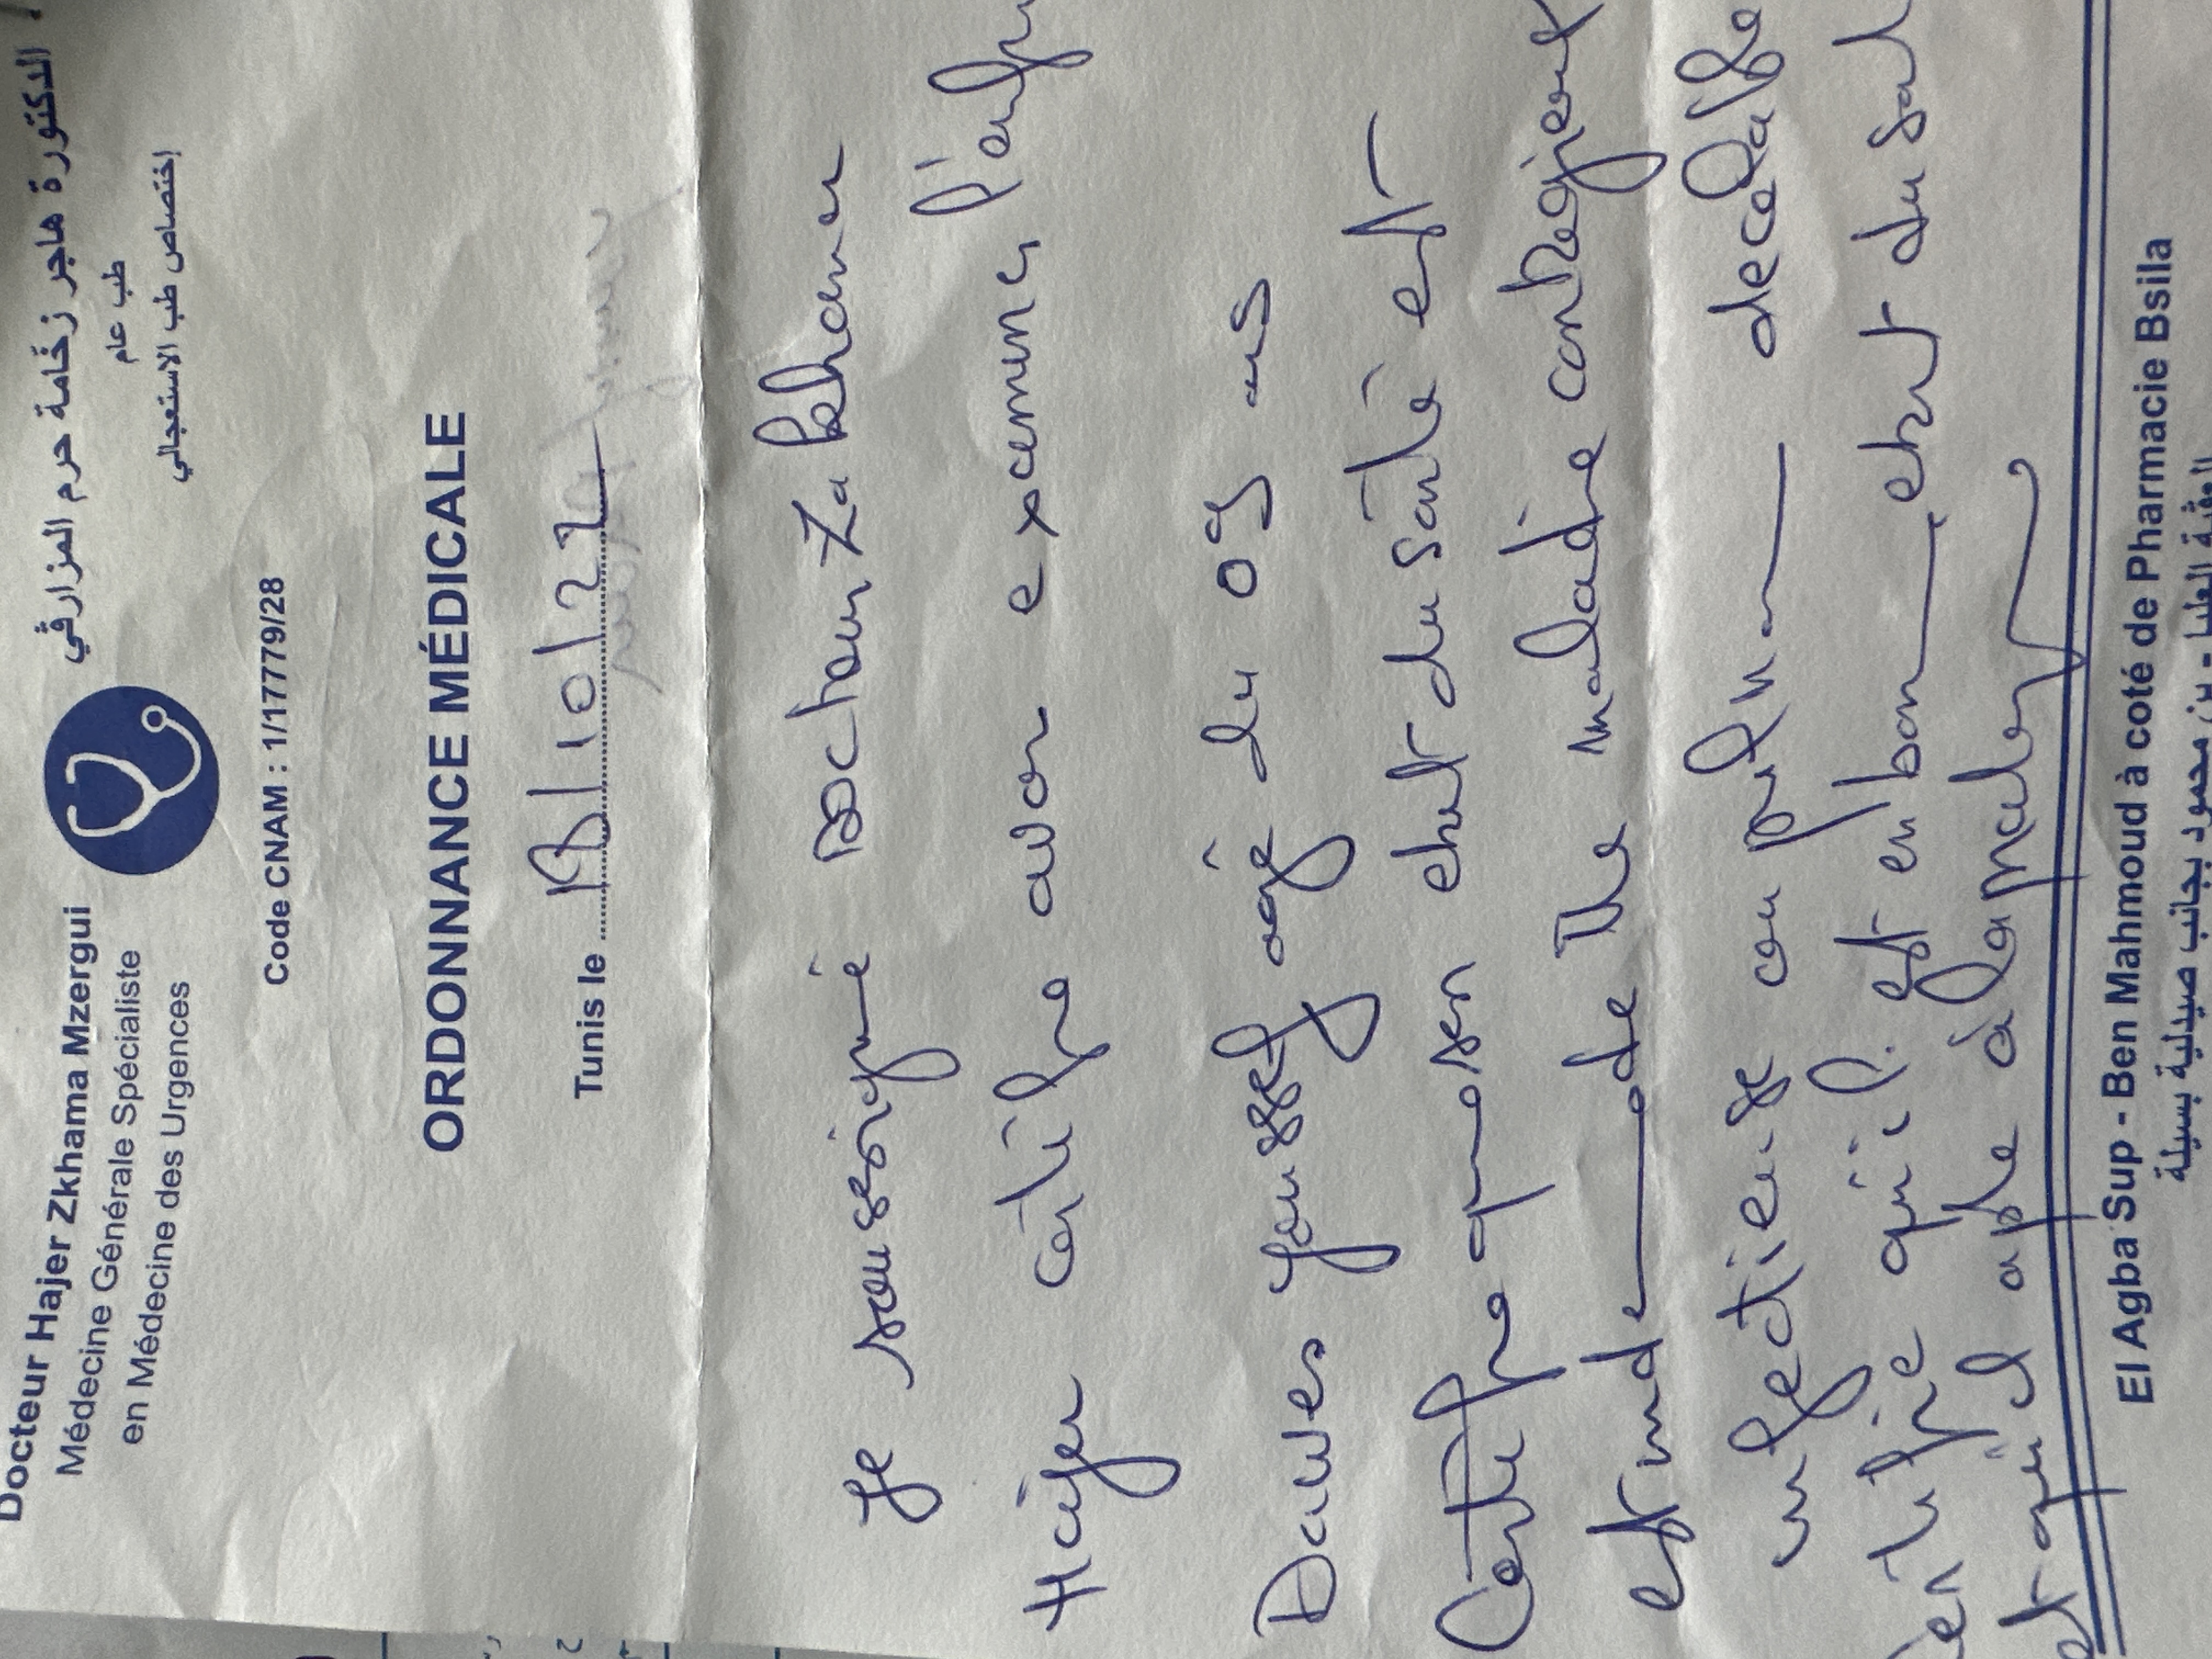 Docteur Hajer Zkhama Mzergui
Médecine Générale Spécialiste
en Médecine des Urgences
الدكتورة هاجر زخامة حرم المزارقي
طب عام
إختصاص طب الاستعجالي
Code CNAM : 1/17779/28
ORDONNANCE MÉDICALE
Tunis le 10/22
Je soussigné Docteur Zakhama
Hajer certifie avoir examiné l'enfant
Dawes Youssef âgé du 09 ans
Certifie que son etat du santé est
est inde de The maladie contagieuse
infectieuse ou pulmon decelable
certifie qu'il est en bon etat du santé
et qu'il apte à la
El Agba Sup - Ben Mahmoud à coté de Pharmacie Bsila
العقبة العليا - بن محمود بجانب صيدلية بسيلة